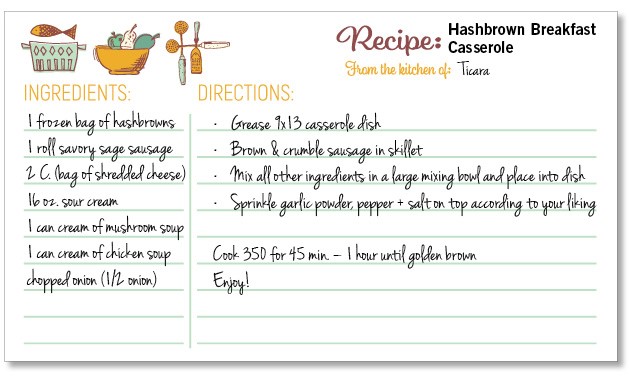 Recipe: Hashbrown Breakfast
Casserole
From the kitchen of: Ticara
INGREDIENTS:
1 frozen bag of hashbrowns
1 roll savory sage sausage
2 C. (bag of shredded cheese)
16 oz. sour cream
1 can cream of mushroom soup
1 can cream of chicken soup
chopped onion (1/2 onion)
DIRECTIONS:
· Grease 9x13 casserole dish
· Brown & crumble sausage in skillet
· Mix all other ingredients in a large mixing bowl and place into dish
· Sprinkle garlic powder, pepper + salt on top according to your liking
Cook 350 for 45 min. – 1 hour until golden brown
Enjoy!